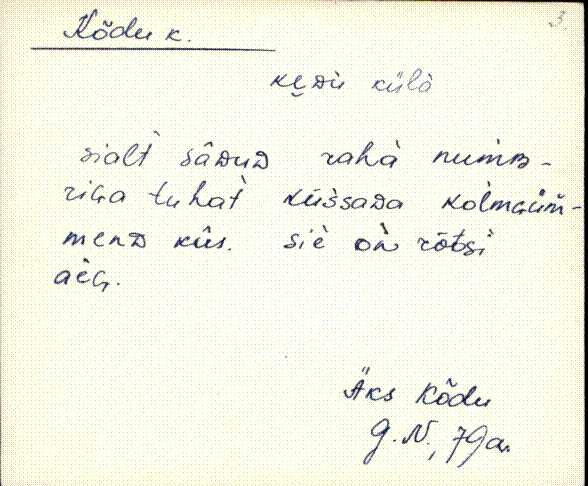 3.
Kõdu k.
kędu külà
sialt sâDuD rahà numB-
riGa tuhat̀ küs̀saDa kolmGüm̀-
menD küs. siè oǹ rōtsi
aèG.
Äks Kõdu
G.N., 79 a.